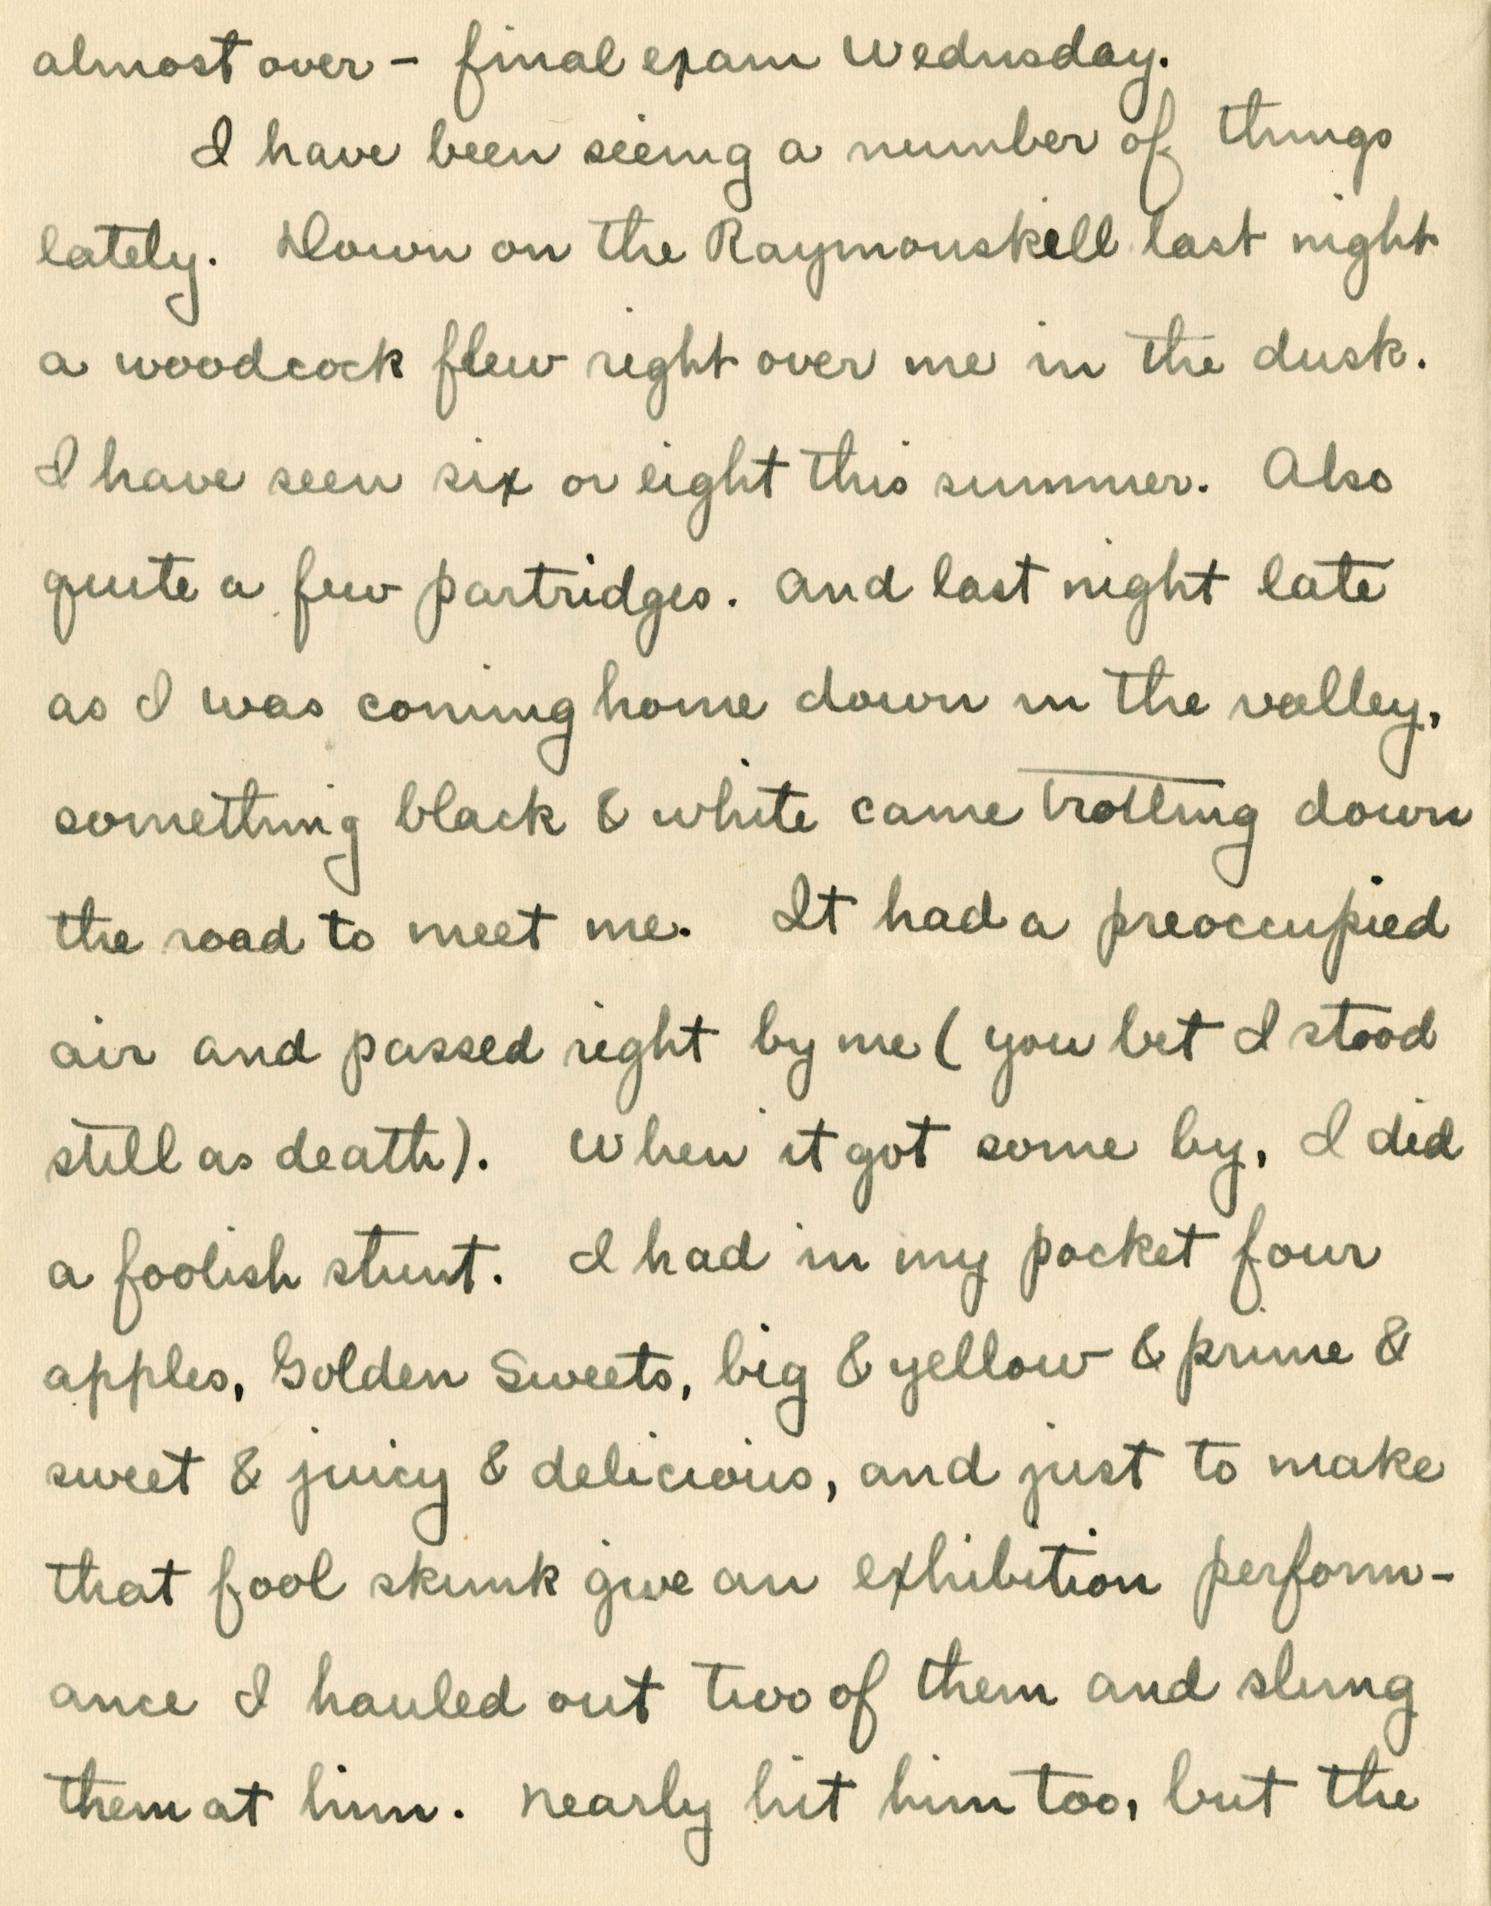 almost over - final exam Wednesday.
I have been seeing a number of things
lately. Down on the Raymonskill last night
a woodcock flew right over me in the dusk.
I have seen six or eight this summer. Also
quite a few partridges. And last night late
as I was coming home down in the valley,
something black & white came trotting down
the road to meet me. It had a preoccupied
air and passed right by me ( you bet I stood
still as death). When it got some by, I did
a foolish stunt. I had in my pocket four
apples, Golden Sweets, big & yellow & prime &
sweet & juicy & delicious, and just to make
that fool skunk give an exhibition perform-
ance I hauled out two of them and slung
them at him. Nearly hit him too, but the